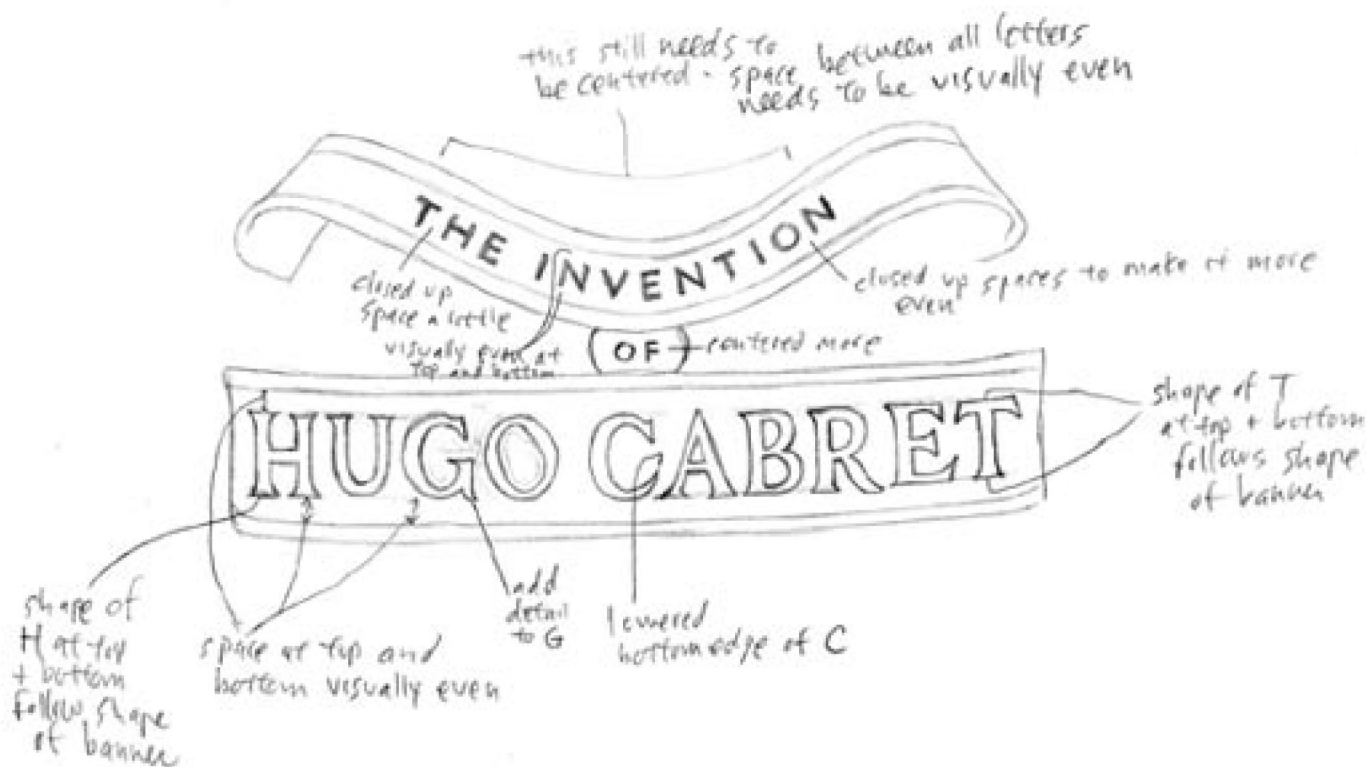 this still needs to
be centered - space between all letters
needs to be visually even
THE INVENTION
closed up
space a little
closed up spaces to make it more
even
visually even at
top and bottom
OF
centered more
HUGO CABRET
shape of T
at top + bottom
follows shape
of banner
shape of
H at top
+ bottom
follow shape
of banner
space at top and
bottom visually even
add
detail
to G
lowered
bottom edge of C